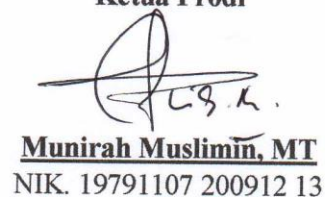 Ketua Prodi
Munirah Muslimin, MT
NIK. 19791107 200912 13